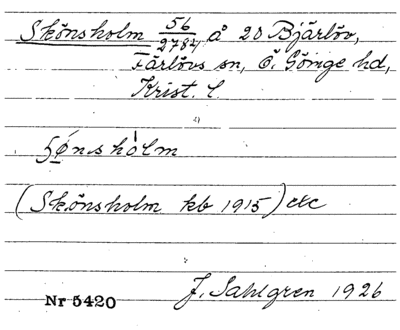 Skönsholm 56/2782 å 20 Bjärlöv,
Färlövs sn, Ö. Göinge hd,
Krist. l.
ʃønshòlm
(Skönsholm kb 1915) etc
J. Sahlgren 1926
Nr 5420